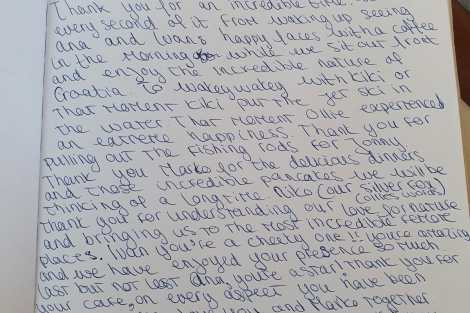 Thank you for an incredible time.
every second of it from waking up seeing
ana and Ivans happy faces with a coffee
in the morning while we sit out front
and enjoy the incredible nature of
Croatia. To wakeywakey with kiki or
that moment kiki put the jet ski in
the water that moment Ollie experienced
an extreme happiness. Thank you for
pulling out the fishing rods for Jonny
Thank you Marko for the delicious dinners
and those incredible pancakes we will be
thinking of a longtime. Niko (our silver fox)
thank you for understanding our love for nature
and bringing us to the most incredible remote
places. Ivan you're a cheeky one !! you're amazing
and we have enjoyed your presence so much
last but not least Ana, you're a star! thank you for
your care, on every aspect you have been
you and Marko together